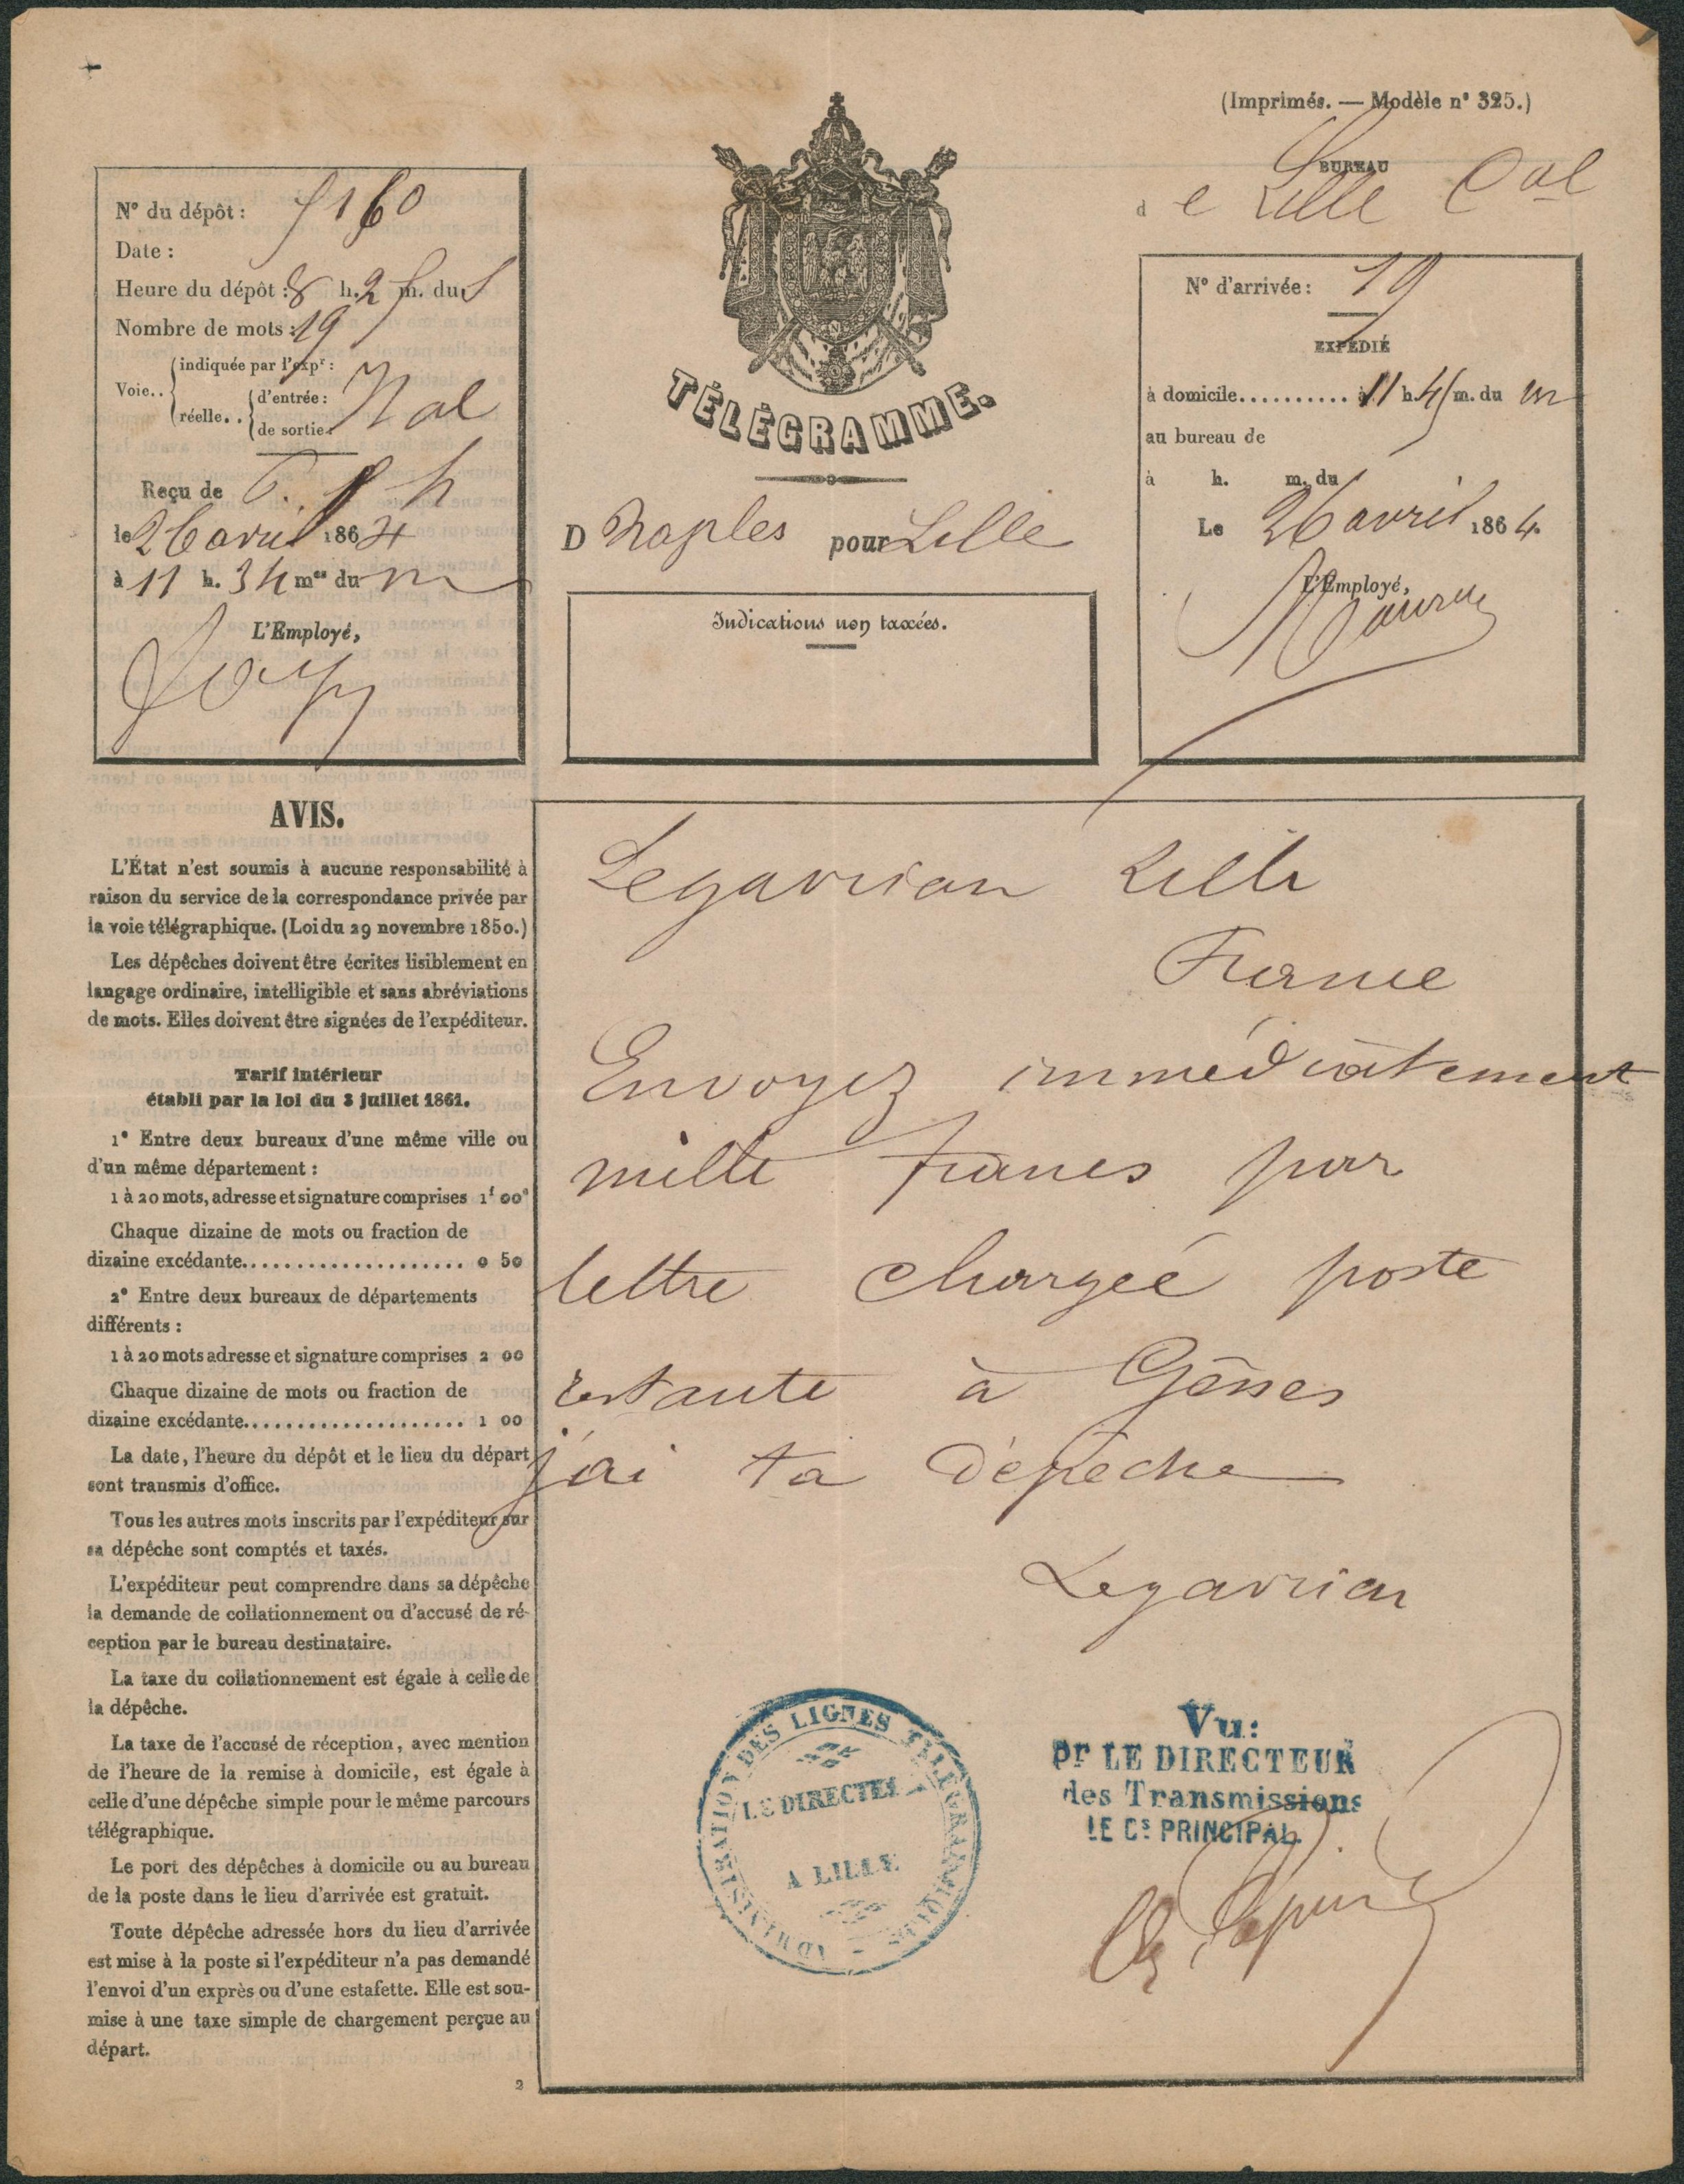 (Imprimés. — Modèle n° 325.)
BUREAU
d e Lille Cal
N° du dépôt : 5160
Date :
Heure du dépôt : 8 h. 25 m. du s
Nombre de mots : 19
Voie.. indiquée par l'expr :
réelle.. d'entrée :
de sortie :
Reçu de
le 26 avril 1864
à 11 h. 34 mes du m
L'Employé,
TÉLÉGRAMME.
D Naples pour Lille
Indications non taxées.
N° d'arrivée : 19
EXPÉDIÉ
à domicile.......... à 11 h. 45 m. du m
au bureau de
à h. m. du
Le 26 avril 1864.
L'Employé,
AVIS.
L'État n'est soumis à aucune responsabilité à
raison du service de la correspondance privée par
la voie télégraphique. (Loi du 29 novembre 1850.)
Les dépêches doivent être écrites lisiblement en
langage ordinaire, intelligible et sans abréviations
de mots. Elles doivent être signées de l'expéditeur.
Tarif intérieur
établi par la loi du 3 juillet 1861.
1° Entre deux bureaux d'une même ville ou
d'un même département :
1 à 20 mots, adresse et signature comprises 1f 00c
Chaque dizaine de mots ou fraction de
dizaine excédante.................... 0 50
2° Entre deux bureaux de départements
différents :
1 à 20 mots adresse et signature comprises 2 00
Chaque dizaine de mots ou fraction de
dizaine excédante.................... 1 00
La date, l'heure du dépôt et le lieu du départ
sont transmis d'office.
Tous les autres mots inscrits par l'expéditeur sur
sa dépêche sont comptés et taxés.
L'expéditeur peut comprendre dans sa dépêche
la demande de collationnement ou d'accusé de ré-
ception par le bureau destinataire.
La taxe du collationnement est égale à celle de
la dépêche.
La taxe de l'accusé de réception, avec mention
de l'heure de la remise à domicile, est égale à
celle d'une dépêche simple pour le même parcours
télégraphique.
Le port des dépêches à domicile ou au bureau
de la poste dans le lieu d'arrivée est gratuit.
Toute dépêche adressée hors du lieu d'arrivée
est mise à la poste si l'expéditeur n'a pas demandé
l'envoi d'un exprès ou d'une estafette. Elle est sou-
mise à une taxe simple de chargement perçue au
départ.
2
Legavrian Lille
France
Envoyez immédiatement
mille francs par
lettre chargée poste
restante à Gênes
j'ai ta dépeche
Legavrian
ADMINISTRATION DES LIGNES TÉLÉGRAPHIQUES
LE DIRECTEUR
A LILLE
Vu:
pr LE DIRECTEUR
des Transmissions
LE Cs PRINCIPAL.